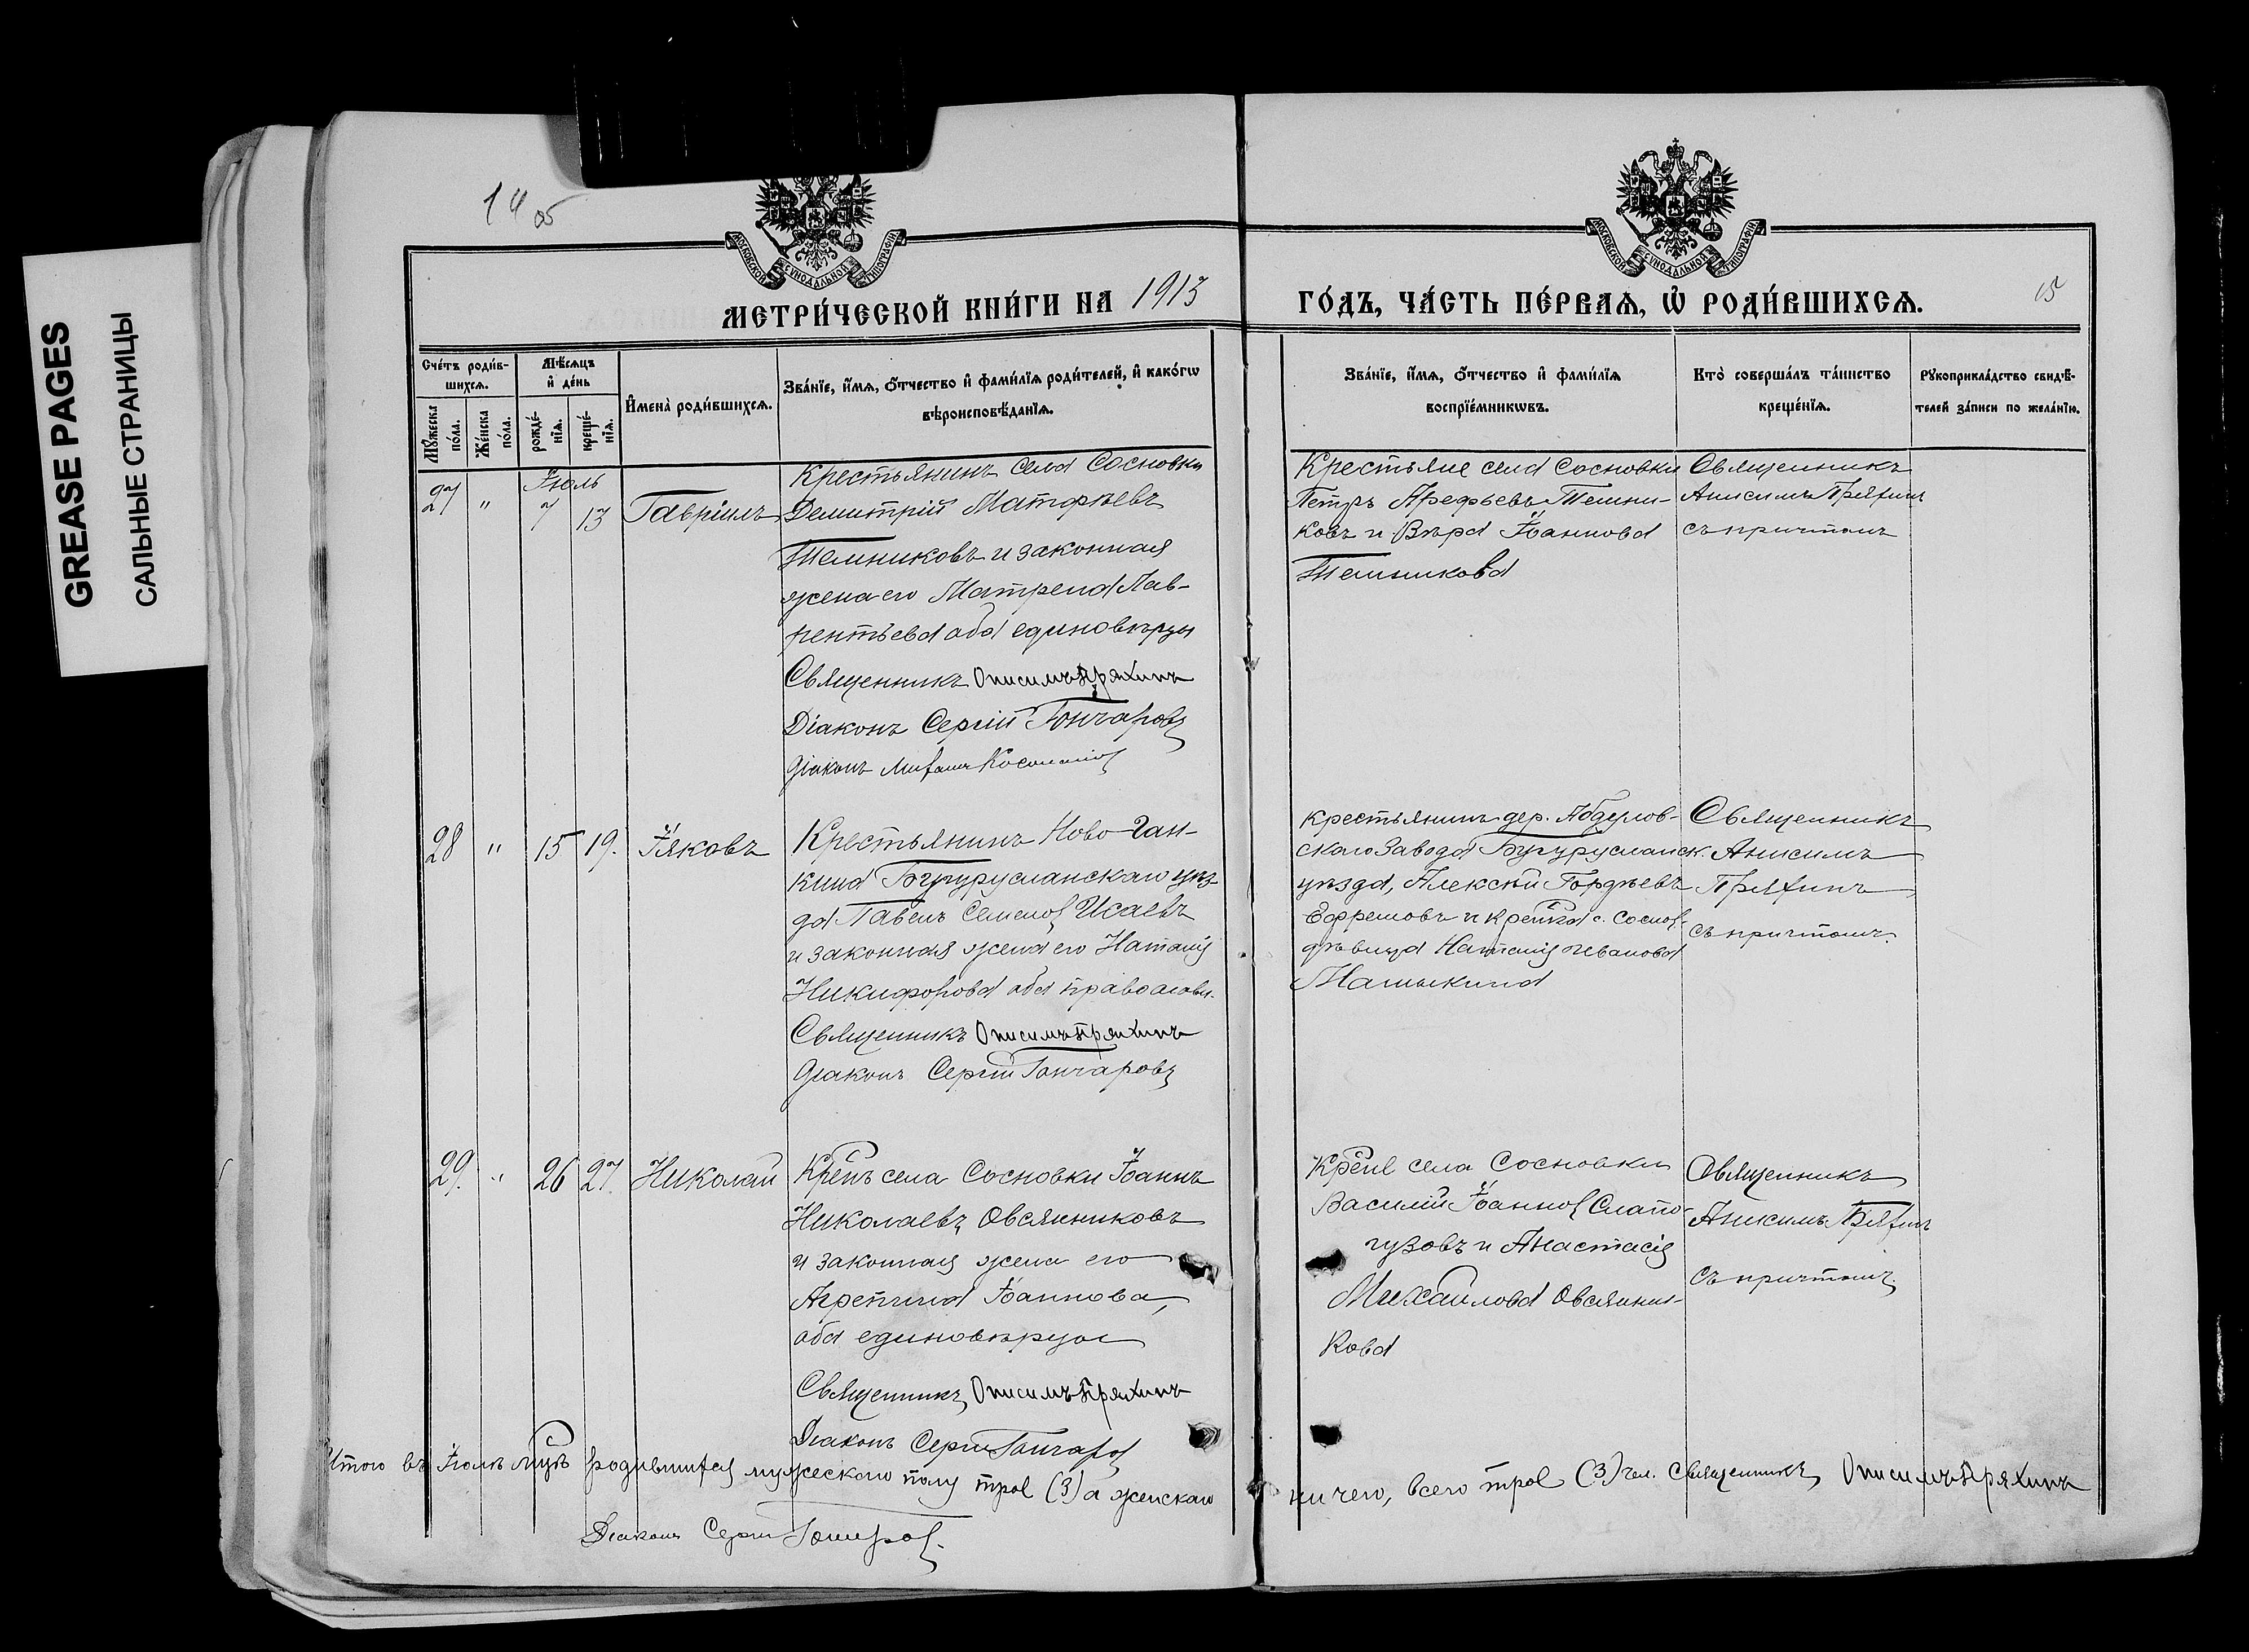 GREASE PAGES
САЛЬНЫЕ СТРАНИЦЫ
МОСКОВСКОЙ СѴНОДАЛЬНОЙ ТИПОГРАФІИ
МОСКОВСКОЙ СѴНОДАЛЬНОЙ ТИПОГРАФІИ
МЕТРИ́ЧЕСКОЙ КНИ́ГИ НА 1913
ГО́ДЪ, ЧА́СТЬ ПЕ́РВАѦ, Ѡ҆ РОДИ́ВШИХСѦ.
15
Сче́тъ роди́в-
шихсѧ.
Мѣ́сѧцъ
и҆ де́нь
Мꙋ́жеска
по́ла.
Же́нска
по́ла.
рожде́-
нїѧ.
креще́-
нїѧ.
И҆мена̀ роди́вшихсѧ.
Зва́нїе, и҆́мѧ, ѻ҆́тчество и҆ фами́лїѧ роди́телей, и҆ како́гѡ
вѣроисповѣ́данїѧ.
Зва́нїе, и҆́мѧ, ѻ҆́тчество и҆ фами́лїѧ
воспрїе́мникѡвъ.
Кто̀ соверша́лъ та́инство
креще́нїѧ.
Рꙋкоприкла́дство свидѣ́-
телей за́писи по жела́нїю.
Іюль
27 " 7 13 Гавріилъ
Крестьянинъ села Сосновки
Димитрій Матфѣевъ
Темниковъ и законная
жена его Матрена Лав-
рентьева оба единовѣрцы
Священникъ Онисимъ Пряхинъ
Діаконъ Сергій Гончаровъ
Діаконъ
Крестьяне села Сосновки
Петръ Арефьевъ Темни-
ковъ и Вѣра Іоаннова
Темникова
Священникъ
Анисимъ Пряхинъ
съ причтомъ
28 " 15 19. Іяковъ
Крестьянинъ Ново-Ган-
кина Бугурусланскаго уѣз-
да Павелъ Семенов Исаевъ
и законная жена его Наталія
Никифорова оба православн.
Священникъ Онисимъ Пряхинъ
Діаконъ Сергій Гончаровъ
Крестьянинъ дер. Абдулов-
скаго Завода Бугурусланск.
уѣзда, Алексѣй Гордѣевъ
Ефремовъ и крест̃ка с. Соснов.
дѣвица Наталія Иванова
Малыкина
Священникъ
Анисимъ
Пряхинъ
съ причтомъ.
29. " 26 27. Николай
Кре̃нъ села Сосновки Іоаннъ
Николаевъ Овсянниковъ
и законная жена его
Агрепина Іоаннова,
оба единовѣрцы
Священникъ Онисимъ Пряхинъ
Діаконъ Сергій Гончаров
Кре̃не села Сосновки
Василій Іоаннов Слапо-
гузовъ и Анастасія
Михаилова Овсянни-
кова
Священникъ
Анисимъ Пряхинъ
съ причтомъ.
Итого въ Іюлѣ мц̃ѣ родившихся мужескаго полу трое (3) а женскаго
ничего, всего трое (3) чел. Священникъ Онисимъ Пряхинъ
Діаконъ Сергій Гончаров.